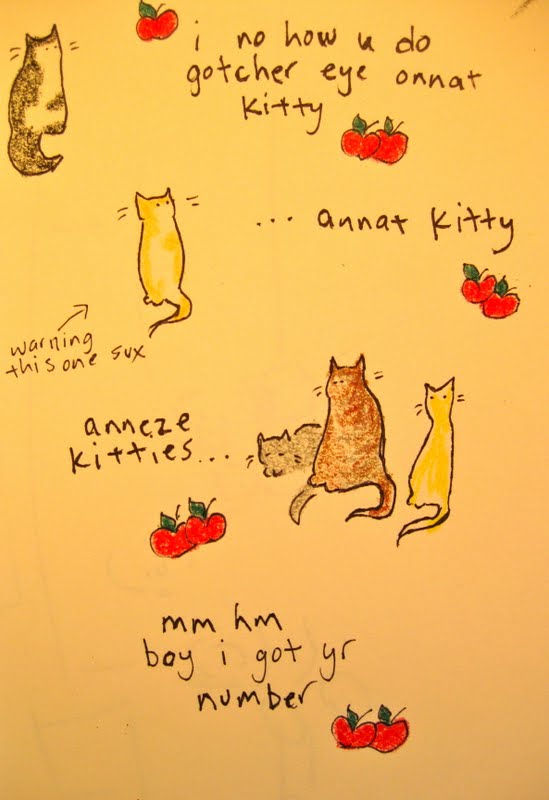 i no how u do
gotcher eye onnat
kitty
... annat kitty
warning
this one sux
anneze
kitties...
mm hm
boy i got yr
number